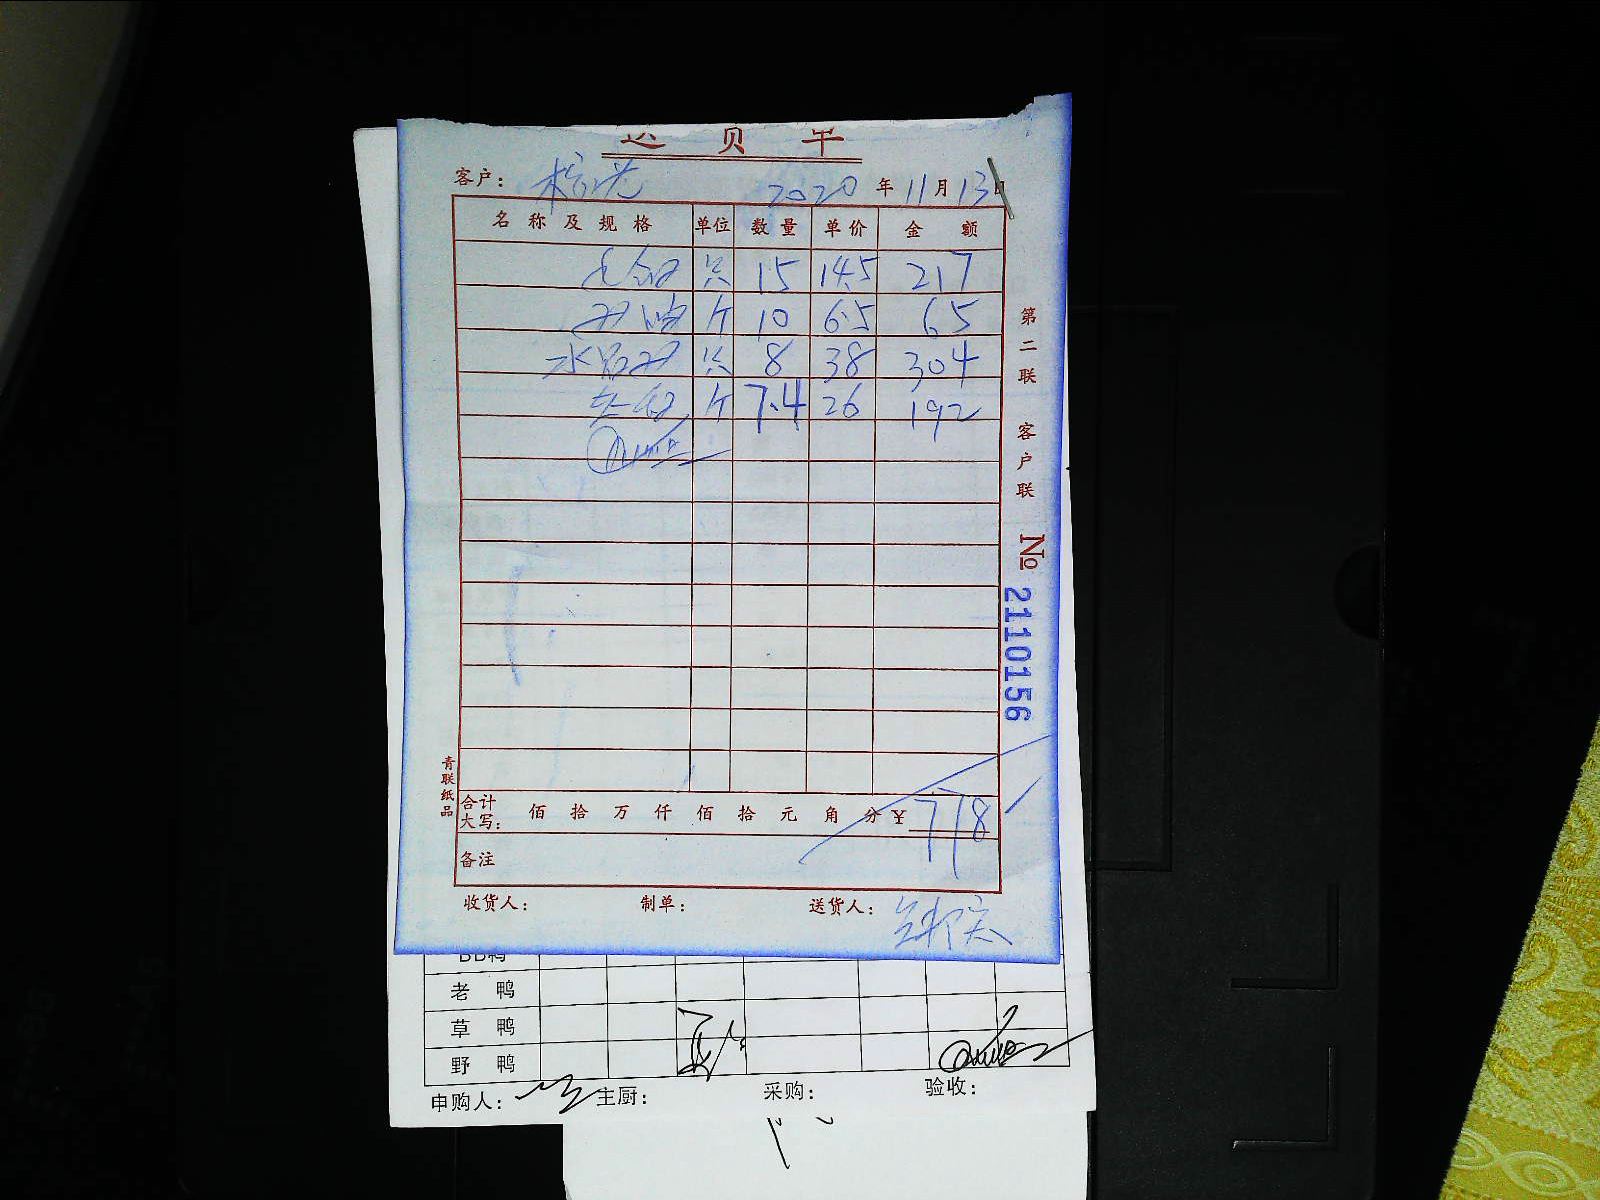 送货单
客户： 2020年11月13日
名称及规格 单位 数量 单价 金额
只 15 14.5 217
斤 10 6.5 65
只 8 38 304
斤 7.4 26 192
第二联 客户联
№ 2110156
青联纸品
合计大写： 佰 拾 万 仟 佰 拾 元 角 分 ¥ 778
备注
收货人： 制单： 送货人：
BB鸭
老鸭
草鸭
野鸭
申购人： 主厨： 采购： 验收：